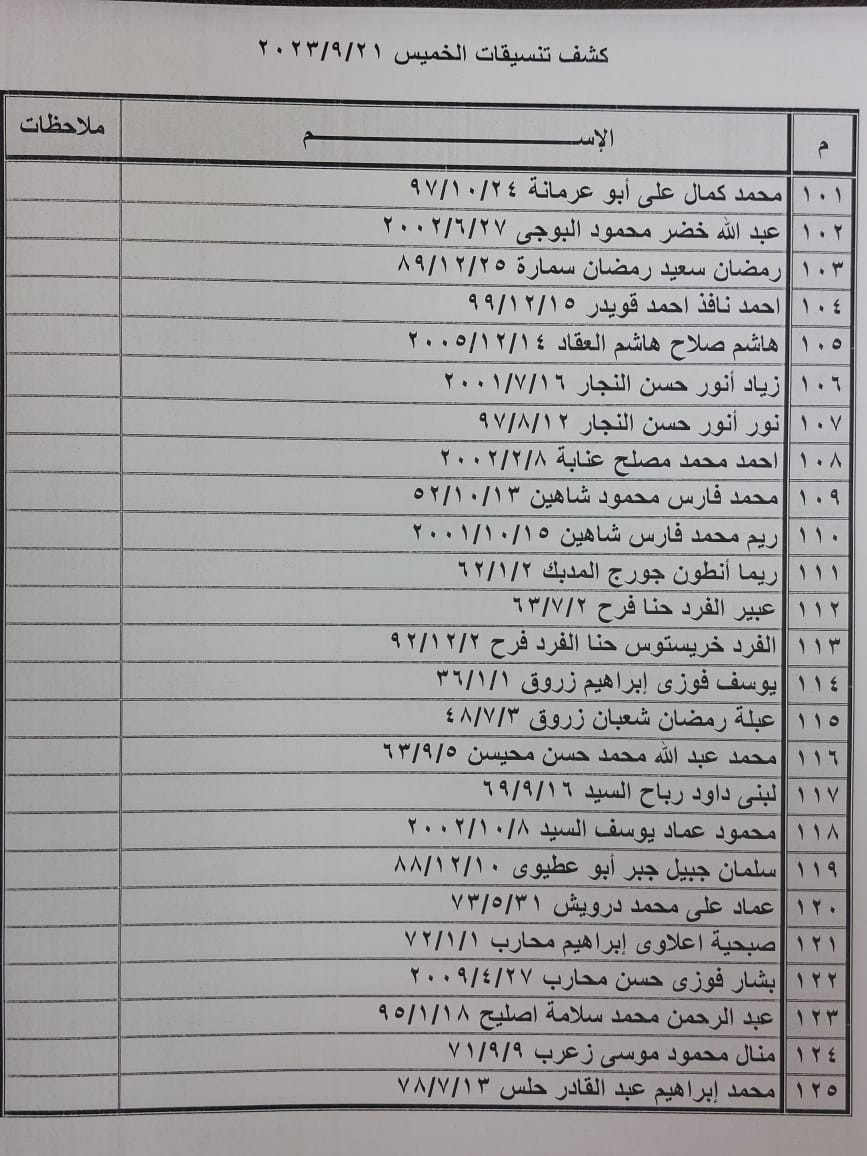 كشف تنسيقات الخميس ٢٠٢٣/٩/٢١
م الإســـــــــــــــــــــــم ملاحظات
١٠١ محمد كمال على أبو عرمانة ٩٧/١٠/٢٤
١٠٢ عبد الله خضر محمود البوجى ٢٠٠٢/٦/٢٧
١٠٣ رمضان سعيد رمضان سمارة ٨٩/١٢/٢٥
١٠٤ احمد نافذ احمد قويدر ٩٩/١٢/١٥
١٠٥ هاشم صلاح هاشم العقاد ٢٠٠٥/١٢/١٤
١٠٦ زياد أنور حسن النجار ٢٠٠١/٧/١٦
١٠٧ نور أنور حسن النجار ٩٧/٨/١٢
١٠٨ احمد محمد مصلح عنابة ٢٠٠٢/٢/٨
١٠٩ محمد فارس محمود شاهين ٥٢/١٠/١٣
١١٠ ريم محمد فارس شاهين ٢٠٠١/١٠/١٥
١١١ ريما أنطون جورج المدبك ٦٢/١/٢
١١٢ عبير الفرد حنا فرح ٦٣/٧/٢
١١٣ الفرد خريستوس حنا الفرد فرح ٩٢/١٢/٢
١١٤ يوسف فوزى إبراهيم زروق ٣٦/١/١
١١٥ عبلة رمضان شعبان زروق ٤٨/٧/٣
١١٦ محمد عبد الله محمد حسن محيسن ٦٣/٩/٥
١١٧ لبنى داود رباح السيد ٦٩/٩/١٦
١١٨ محمود عماد يوسف السيد ٢٠٠٢/١٠/٨
١١٩ سلمان جبيل جبر أبو عطيوى ٨٨/١٢/١٠
١٢٠ عماد على محمد درويش ٧٣/٥/٣١
١٢١ صبحية اعلاوى إبراهيم محارب ٧٢/١/١
١٢٢ بشار فوزى حسن محارب ٢٠٠٩/٤/٢٧
١٢٣ عبد الرحمن محمد سلامة اصليح ٩٥/١/١٨
١٢٤ منال محمود موسى زعرب ٧١/٩/٩
١٢٥ محمد إبراهيم عبد القادر حلس ٧٨/٧/١٣